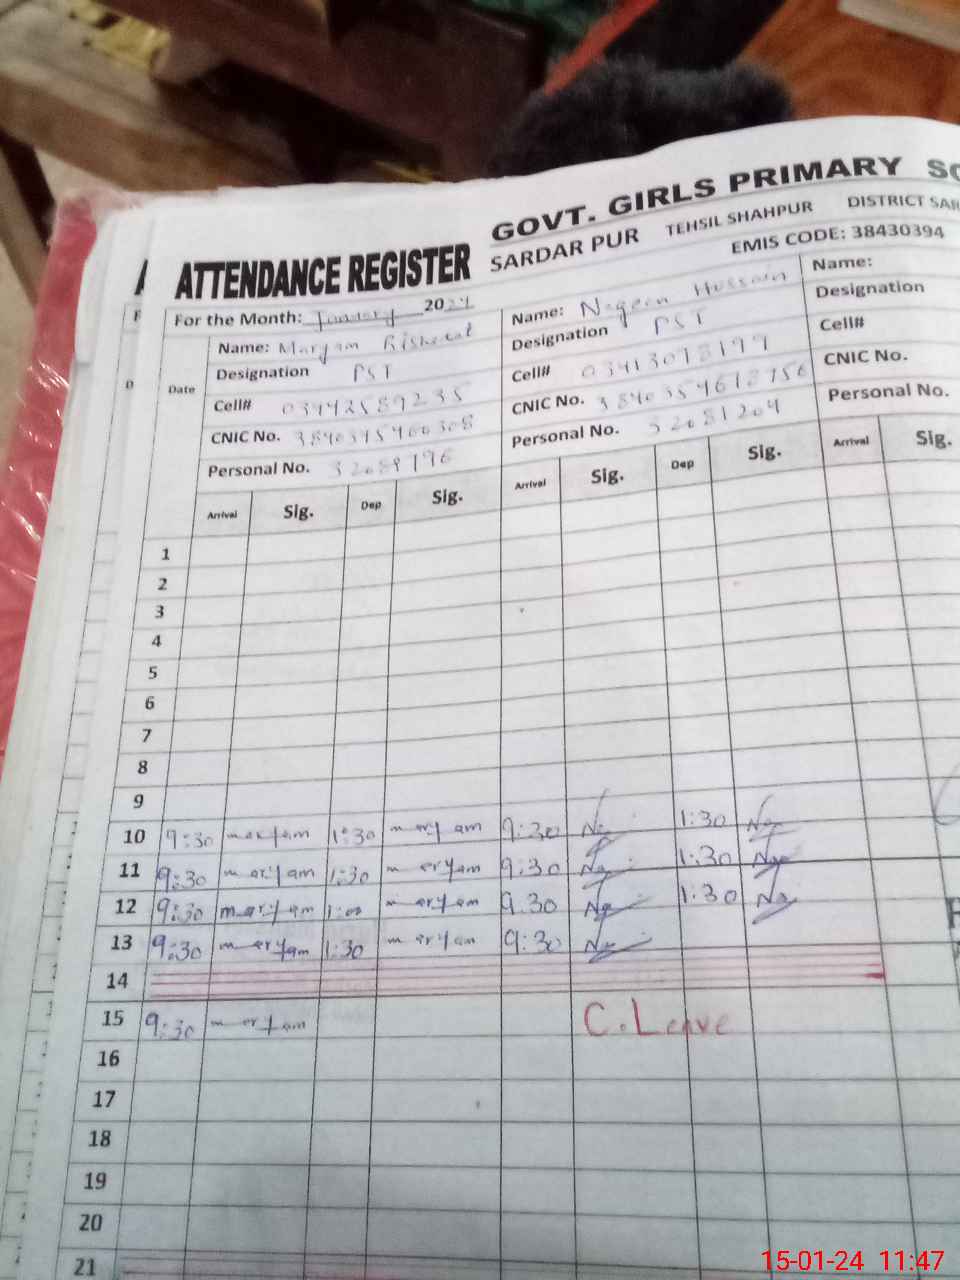 GOVT. GIRLS PRIMARY
SARDAR PUR TEHSIL SHAHPUR DISTRICT
ATTENDANCE REGISTER EMIS CODE: 38430394
For the Month: January 2024
Date
Name: Maryam
Designation PST
Cell# 03442589235
CNIC No.
Personal No.
Arrival Sig. Dep Sig.
Name: Nageen Hussain
Designation PST
Cell#
CNIC No.
Personal No. 32081204
Arrival Sig. Dep Sig.
Name:
Designation
Cell#
CNIC No.
Personal No.
Arrival Sig.
1
2
3
4
5
6
7
8
9
10 9:30 maryam 1:30 maryam 9:30 1:30
11 9:30 maryam 1:30 maryam 9:30 1:30
12 9:30 maryam 1:00 maryam 9:30 1:30
13 9:30 maryam 1:30 maryam 9:30
14
15 9:30 maryam C.Leave
16
17
18
19
20
21
15-01-24 11:47